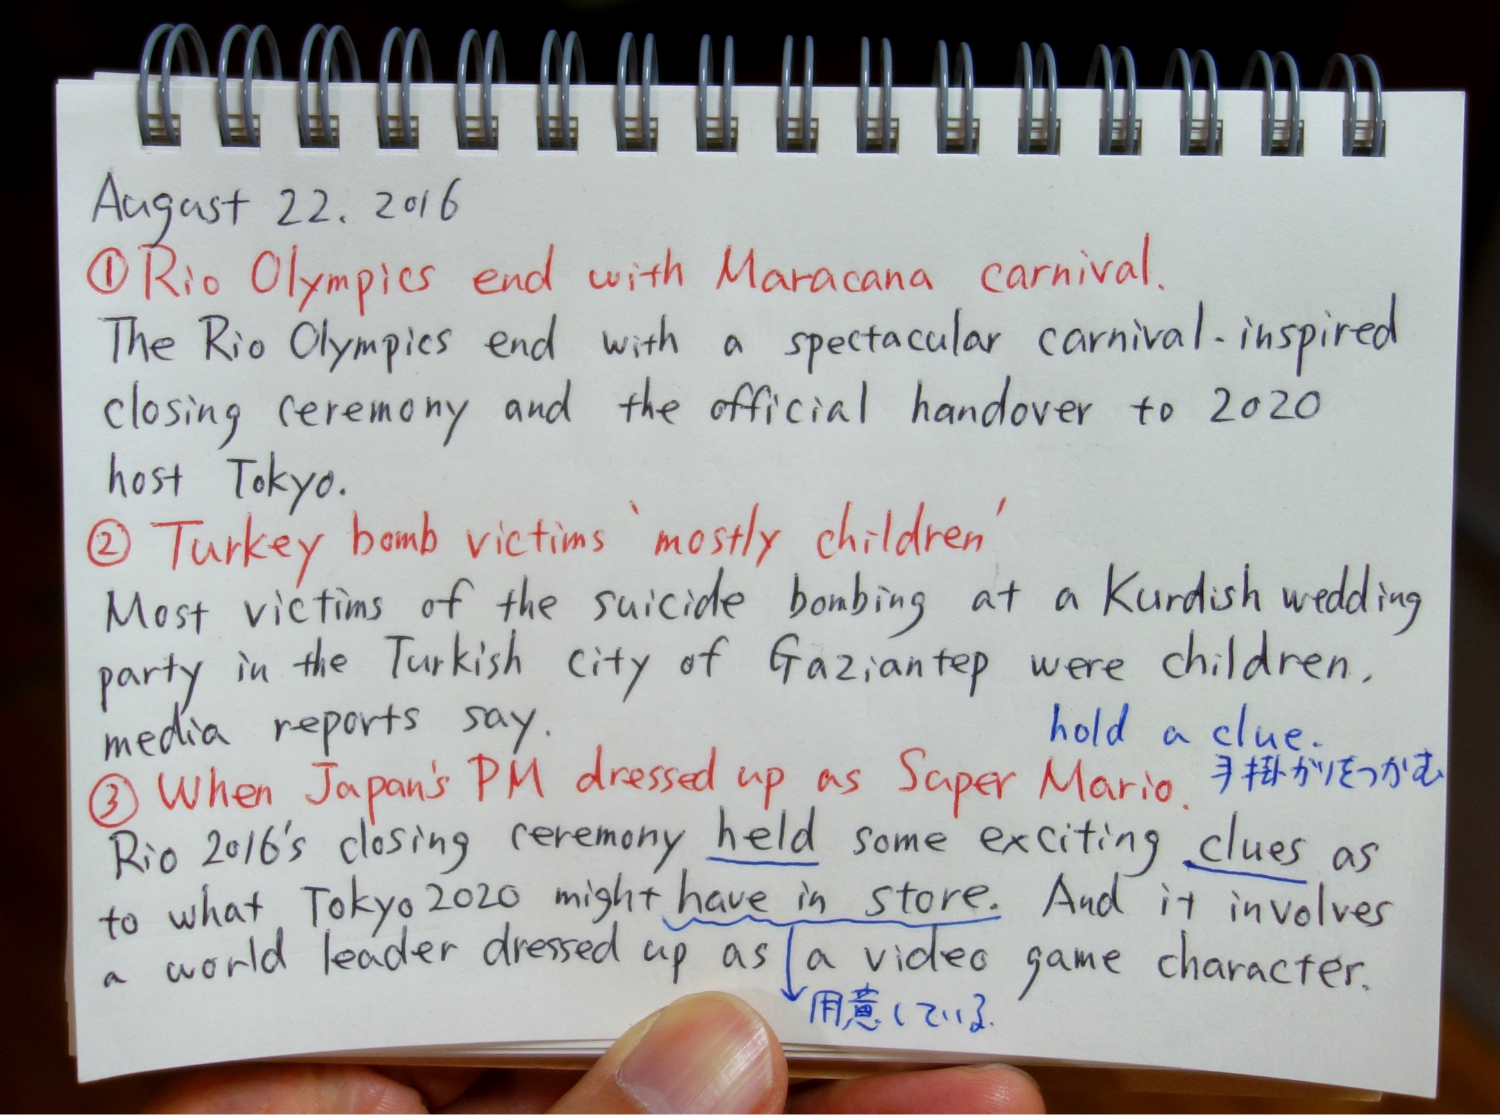 August 22. 2016
① Rio Olympics end with Maracana carnival.
The Rio Olympics end with a spectacular carnival-inspired
closing ceremony and the official handover to 2020
host Tokyo.
② Turkey bomb victims 'mostly children'
Most victims of the suicide bombing at a Kurdish wedding
party in the Turkish city of Gaziantep were children,
media reports say.
hold a clue.
手掛がりをつかむ
③ When Japan's PM dressed up as Super Mario.
Rio 2016's closing ceremony held some exciting clues as
to what Tokyo 2020 might have in store. And it involves
a world leader dressed up as a video game character.
用意している.